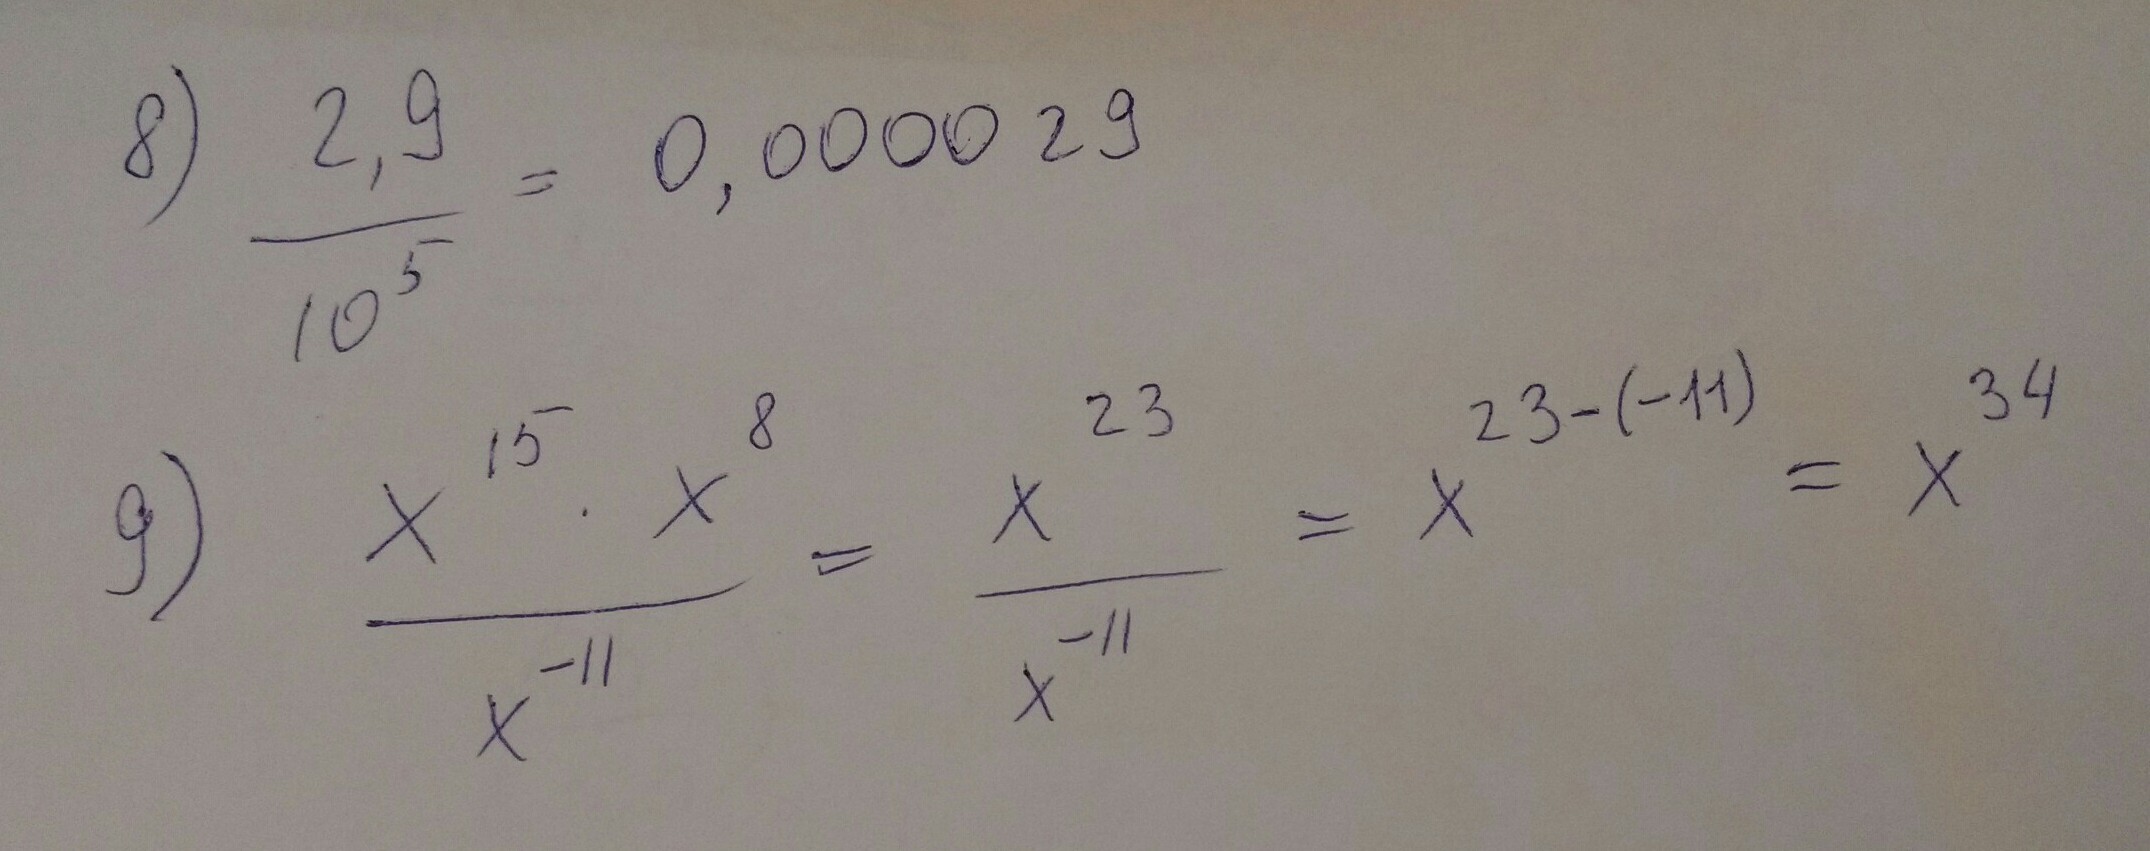 8) 2,9 / 10^5 = 0,000029
9) x^15 · x^8 / x^-11 = x^23 / x^-11 = x^23-(-11) = x^34